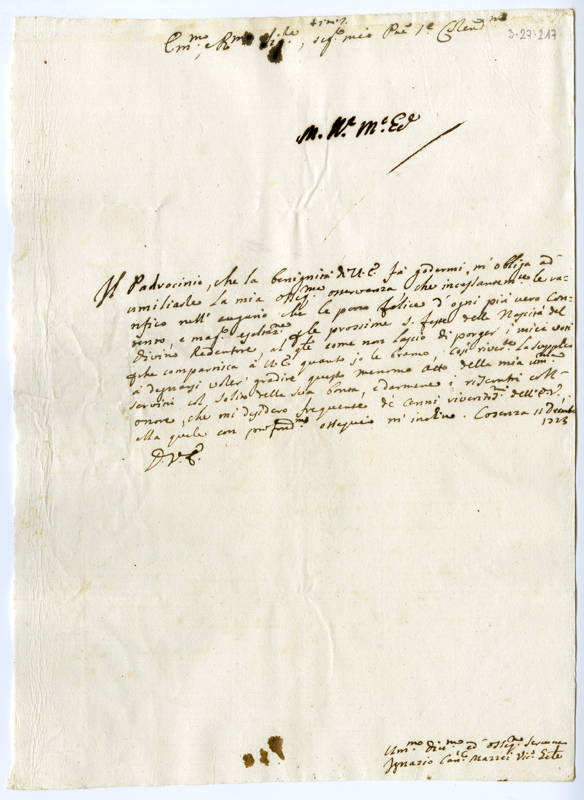 3-27-217
Em.mo, e R.mo Sig.re, sig.r mio P.ne Col.mo
Il Padrocinio, che la benignità di V. E. fà godermi, m'obliga ad
umiliarle la mia osseq.ma osservanza che incessantem.te le ra-
tifico nell'augurio che le porto felice d'ogni più vero con-
tento, e mag.r esaltaz.ne le prossime S. feste della Nascità del
Divino Redentore, al q.le come non lascio di porger i miei voti
che comparisca à V. E. quanto io le bramo, così la supplico
à degnarsi voler gradire questo menomo atto della mia
servitù al solito della sua bontà, e darmene i riscontri
onore, che mi desidero frequente di cenni dell'E. V.,
alla quale con prof.mo ossequio m'inchino. Cosenza 11 Decembre
D. V. E.
Um.mo Div.mo ed osseq.mo Servitore
Ignazio Can.co